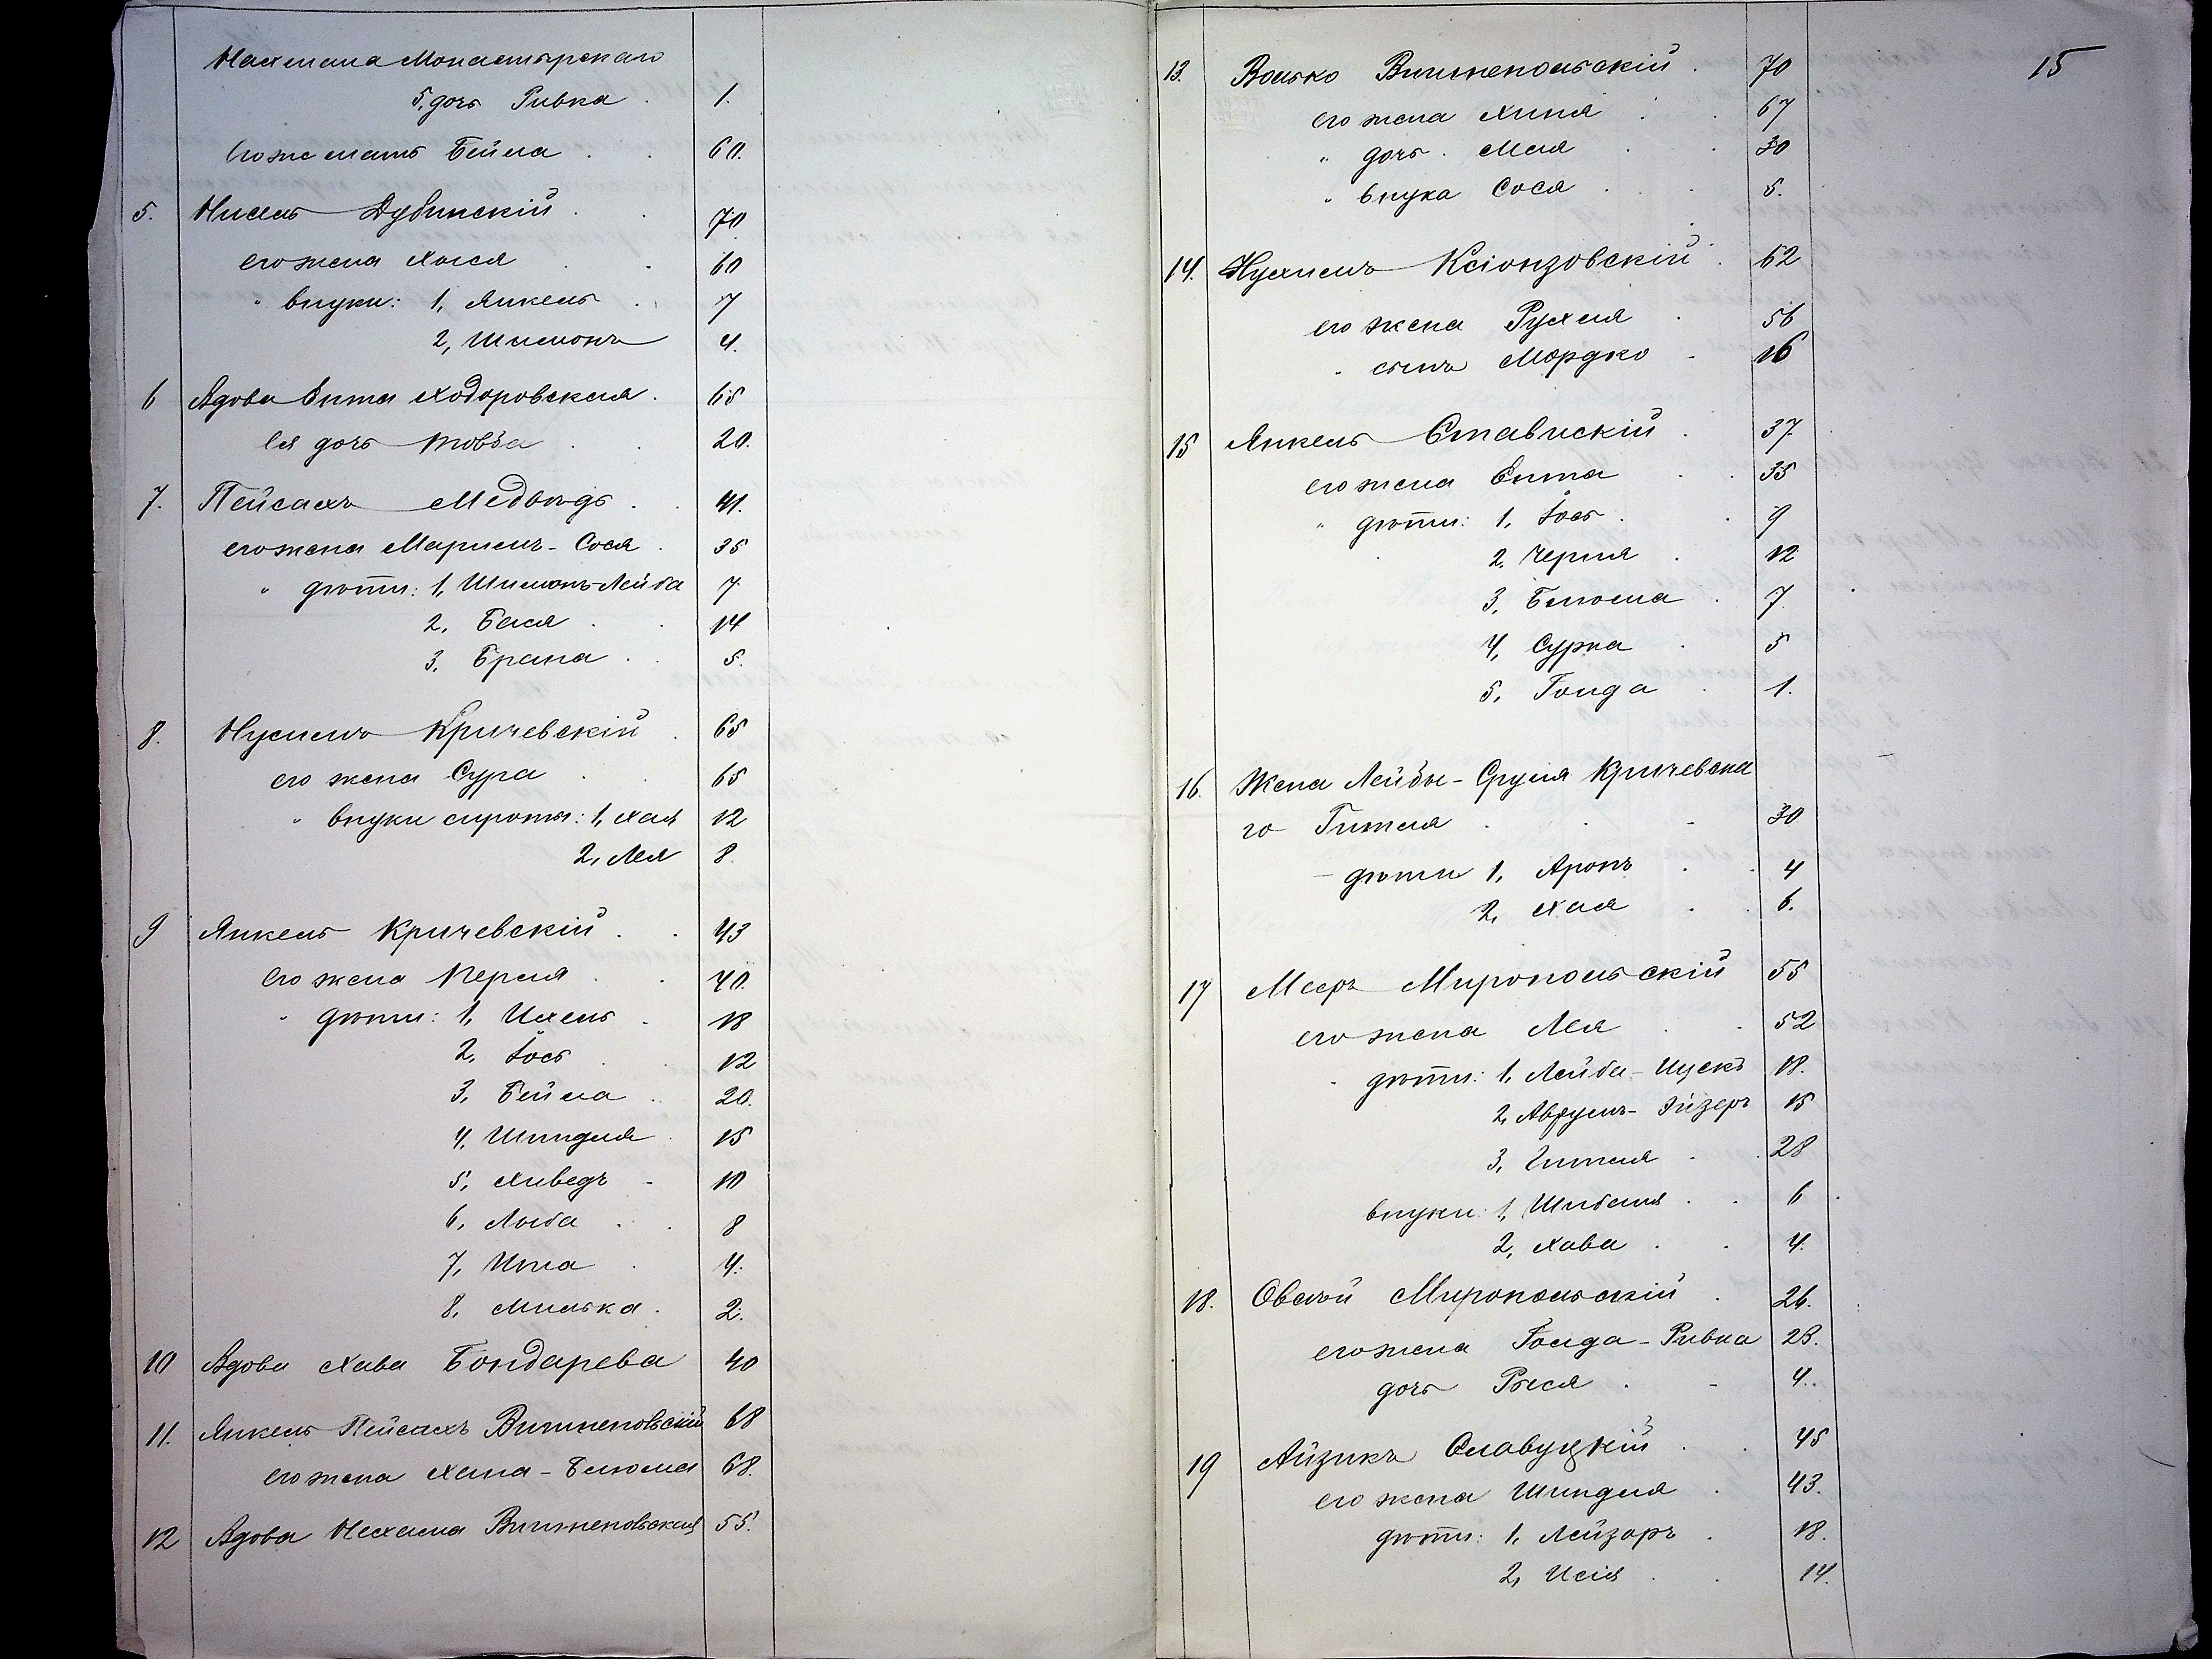 Нахмана Монастырскаго
5, дочь Ривка . 1.
его же мать Бейла . . 60.
5. Нисель Дубинскій . . 70
его жена Хася . . 60
" внуки: 1, Янкель . 7
2, Шимонъ 4.
6 Вдова Ента Ходоровская . 65
Ея дочь Товба . . 20.
7. Пейсахъ Медвѣдь . . 41.
его жена Маримъ-Сося . 35
" дѣти: 1, Шимонъ-Лейба 7.
2, Бася . . 14
3, Брана . . 5.
8. Нусимъ Кричевскій . 65
его жена Сура . . 65
" внуки сироты: 1, Хая 12
2, Лея 8.
9 Янкель Кричевскій . . 43
Его жена Перля . . 40.
" дѣти: 1, Ихель . 18
2, Іось . . 12
3, Бейла . 20.
4, Шиндля . 15
5, Хиведъ - 10
6, Люба . . 8
7, Ита . 4.
8, Милька . 2.
10 Вдова Хава Бондарева 40
11. Янкель-Пейсахъ Вишнепольскій 68
его жена Хана-Блюма 68.
12 Вдова Нехама Вишнепольская 55.
15
13. Волько Вишнепольскій . 70
его жена Хиня . . 67
" дочь . Маля . . 30
" внука Сося . . 5.
14. Нухимъ Ксіонзовскій . 62
его жена Рухля . 56
" сынъ Мордко . 16
15 Янкель Ставискій . 37.
его жена Ента . . 35
" дѣти: 1, Іось . . 9
2, Черня . 12
3, Блюма . 7.
4, Сурка . 5
5, Голда . 1.
16. Жена Лейбы-Сруля Кричевска
го Гитля . . - 30
- дѣти 1, Аронъ . . 4
2, Хая . . 6.
17 Мееръ Миропольскій 55
его жена Лея . . 52
" дѣти: 1, Лейба-Ицекъ 18.
2, Аврумъ-Эйзеръ 15
3, Гитля . . 28
внуки: 1, Шибаля . . 6
2, Хава . . 4.
18. Овсѣй Миропольскій . 26.
его жена Голда-Ривка 23.
дочь Рыся . - 4.
19 Айзикъ Славуцкій . . 45
его жена Шиндля . 43.
дѣти: 1, Лейзоръ . 18.
2, Исія . . 14.